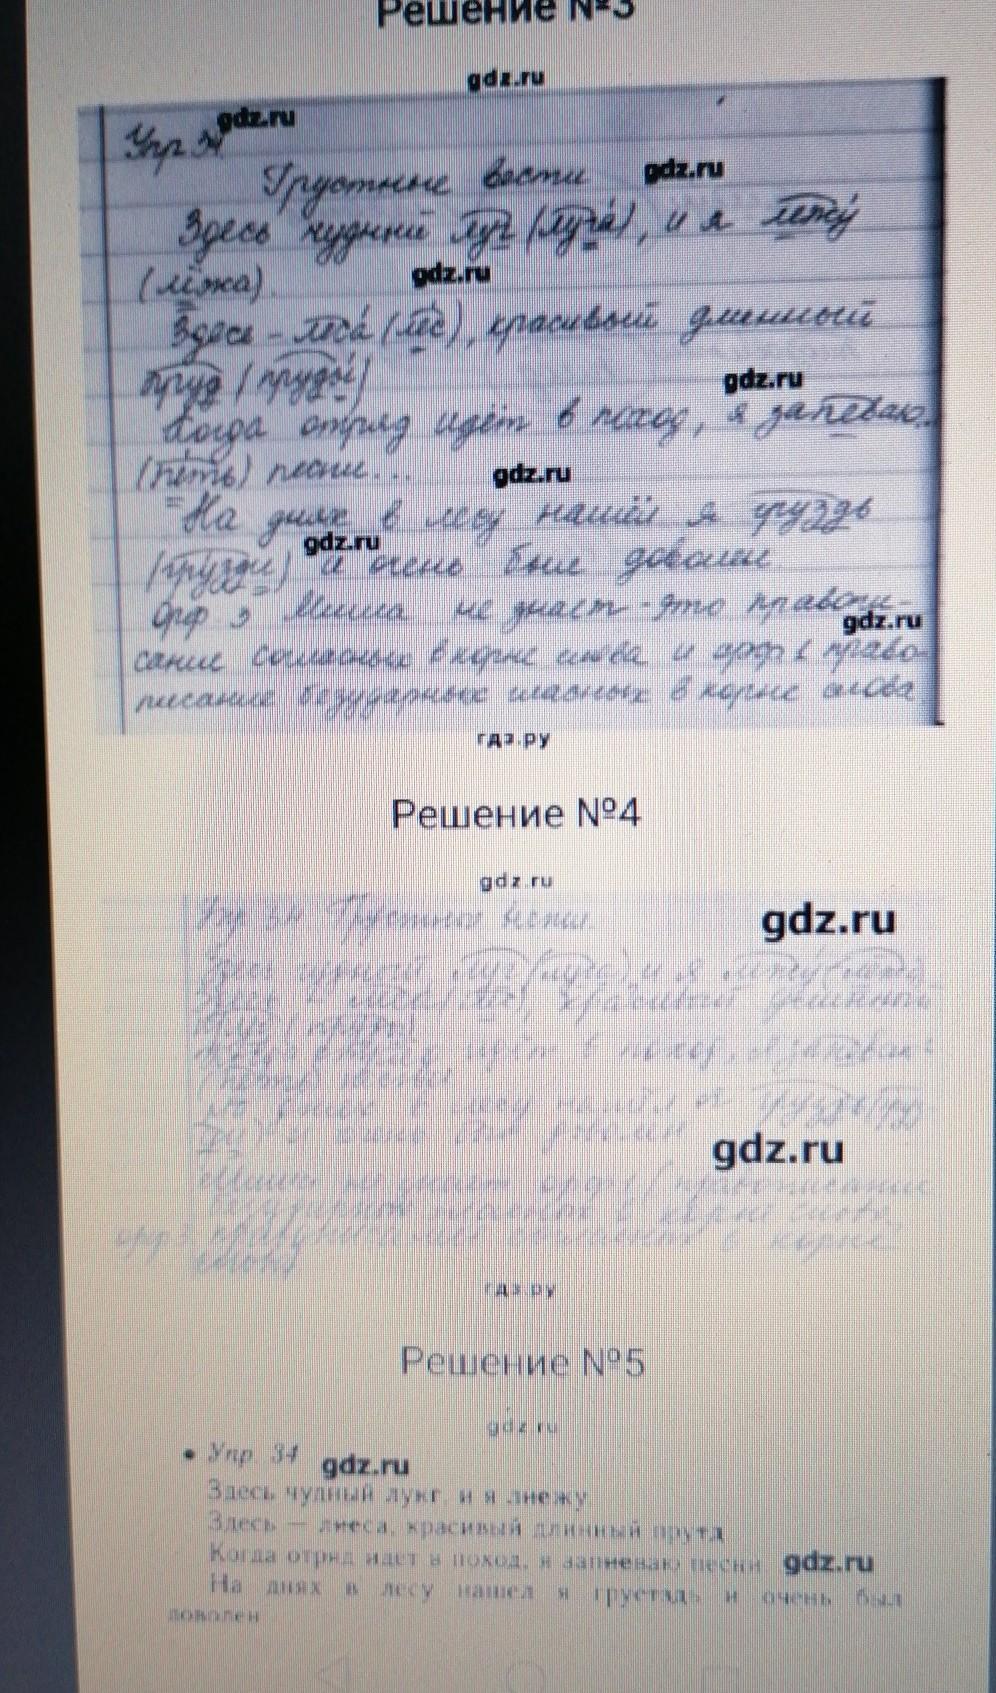 Решение №3
gdz.ru
gdz.ru
Упр 34
Грустные вести
gdz.ru
Здесь чудный луг (луга), и я лежу
(лёжа).
gdz.ru
Здесь - леса (лес), красивый длинный
пруд (пруды)
gdz.ru
Когда отряд идёт в поход, я запеваю
(петь) песни...
gdz.ru
На днях в лесу нашёл я груздь
gdz.ru
(грузди) и очень был доволен
Орф 3 Миша не знает - это правопи-
gdz.ru
сание согласных в корне слова и орф 1 право-
писание безударных гласных в корне слова
гдз.ру
Решение №4
gdz.ru
Упр 34 Грустные вести.
gdz.ru
луг (луга) и я лежу
красивый длинный
в поход, я запеваю
в лесу нашёл я груздь
gdz.ru
не знает орф 1 (правописание
безударных гласных в корне слова
в корне
слова)
гдз.ру
Решение №5
gdz.ru
• Упр. 34
gdz.ru
Здесь чудный лукг, и я лиежу
Здесь — лиеса, красивый длинный прутд
Когда отряд идет в поход, я запиеваю песни
gdz.ru
На днях в лесу нашел я грустздь и очень был
доволен